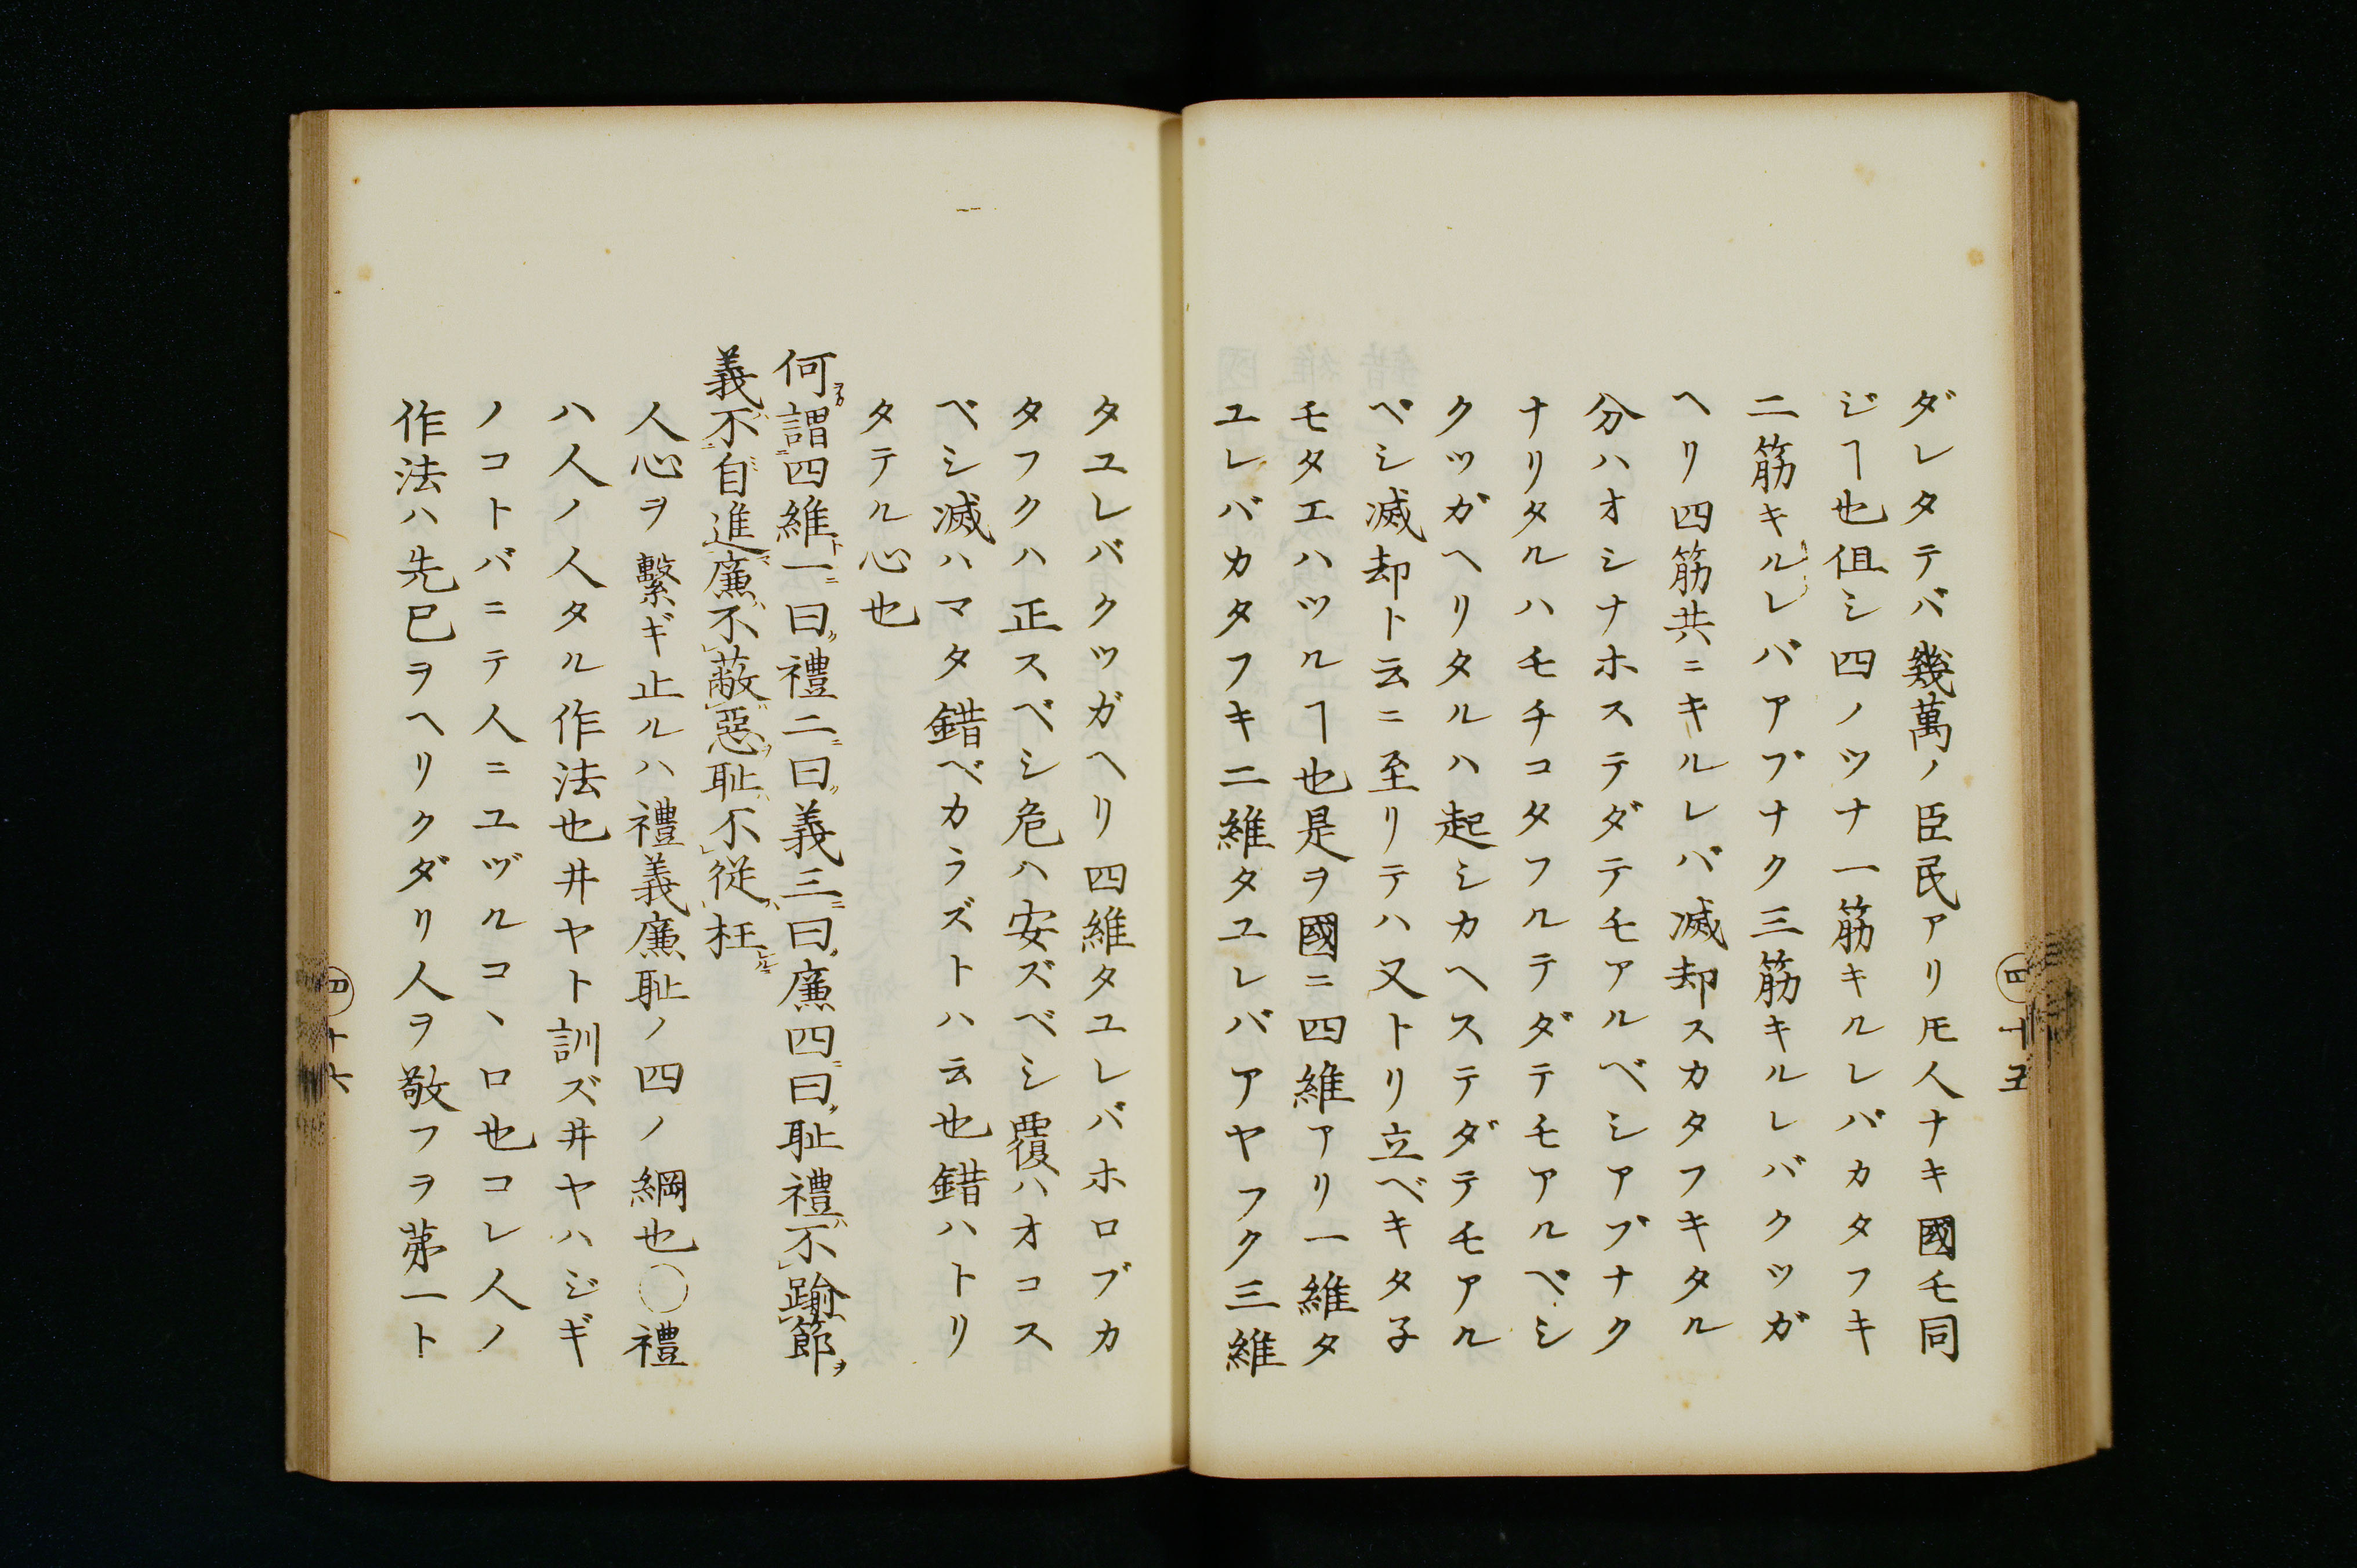 ダレタテバ幾萬ノ臣民アリ𪜈人ナキ國モ同
ジヿ也但シ四ノツナ一筋キルレバカタフキ
二筋キルレバアブナク三筋キルレバクツガ
ヘリ四筋共ニキルレバ滅却スカタフキタル
分ハオシナホステダテモアルベシアブナク
ナリタルハモチコタフルテダテモアルベシ
クツガヘリタルハ起シカヘステダテモアル
ベシ滅却ト云ニ至リテハ又トリ立ベキタ子
モタエハツルヿ也是ヲ國ニ四維アリ一維タ
ユレバカタフキ二維タユレバアヤフク三維
四十五
タユレバクツガヘリ四維タユレバホロブカ
タフクハ正スベシ危ハ安ズベシ覆ハオコス
ベシ滅ハマタ錯ベカラズトハ云也錯ハトリ
タテル心也
何謂四維一曰禮二曰義三曰廉四曰耻禮不踰節
義不自進廉不蔽惡耻不從枉
人心ヲ繫ギ止ルハ禮義廉耻ノ四ノ綱也○禮
ハ人ノ人タル作法也井ヤト訓ズ井ヤハジギ
ノコトバニテ人ニユヅルコヽロ也コレ人ノ
作法ハ先已ヲヘリクダリ人ヲ敬フヲ苐一ト
四十六